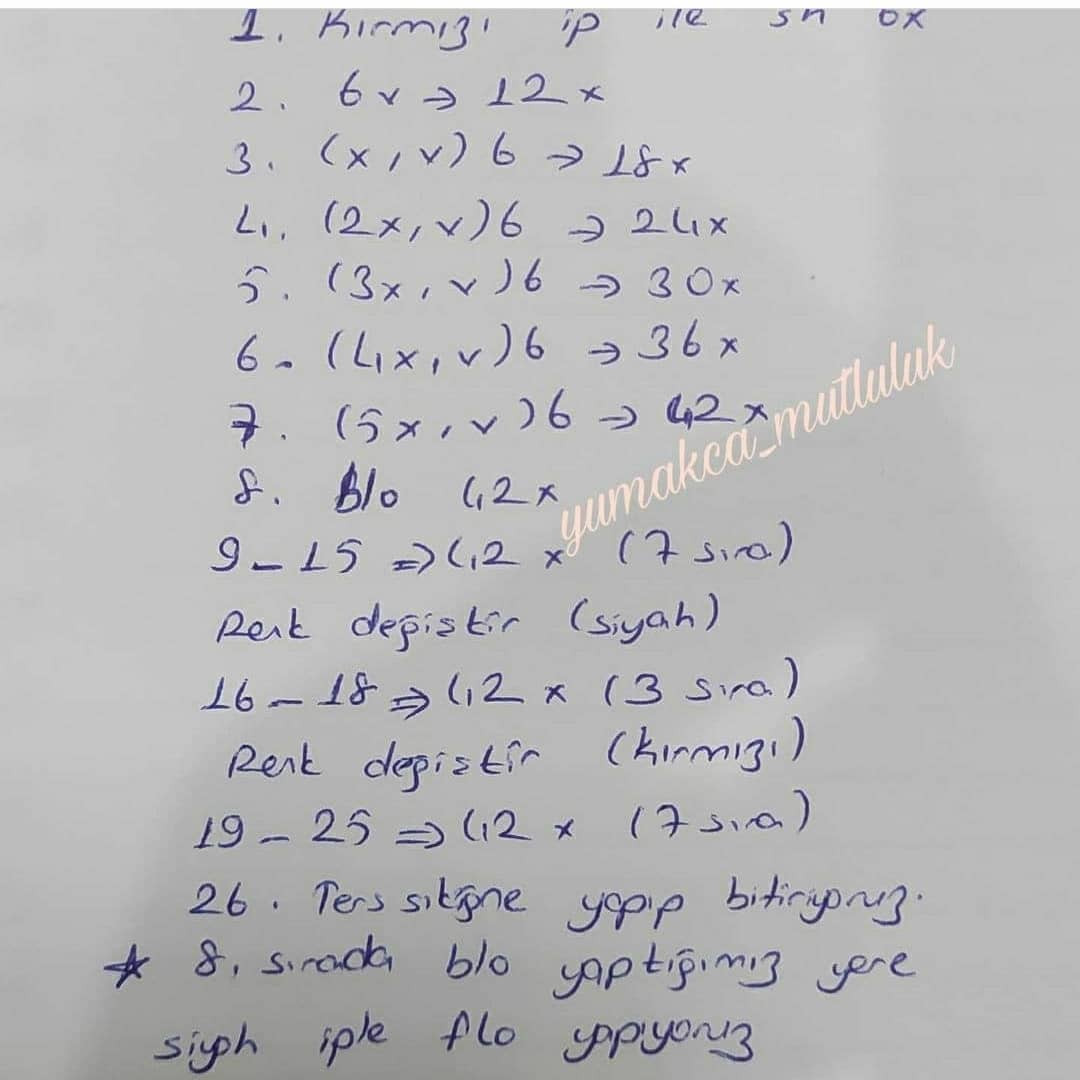 1. Kırmızı ip ile sh 6x
2. 6v → 12x
3. (x, v) 6 → 18x
4. (2x, v) 6 → 24x
5. (3x, v) 6 → 30x
6. (4x, v) 6 → 36x
7. (5x, v) 6 → 42x
8. Blo 42x
9-15 ⇒ 42x (7 sıra)
Renk değiştir (siyah)
16-18 ⇒ 42x (3 sıra)
Renk değiştir (kırmızı)
19-25 ⇒ 42x (7 sıra)
26. Ters sıkiğne yapıp bitiriyoruz.
* 8. sırada blo yaptığımız yere
siyah iple flo yapıyoruz
yumakca_mutluluk